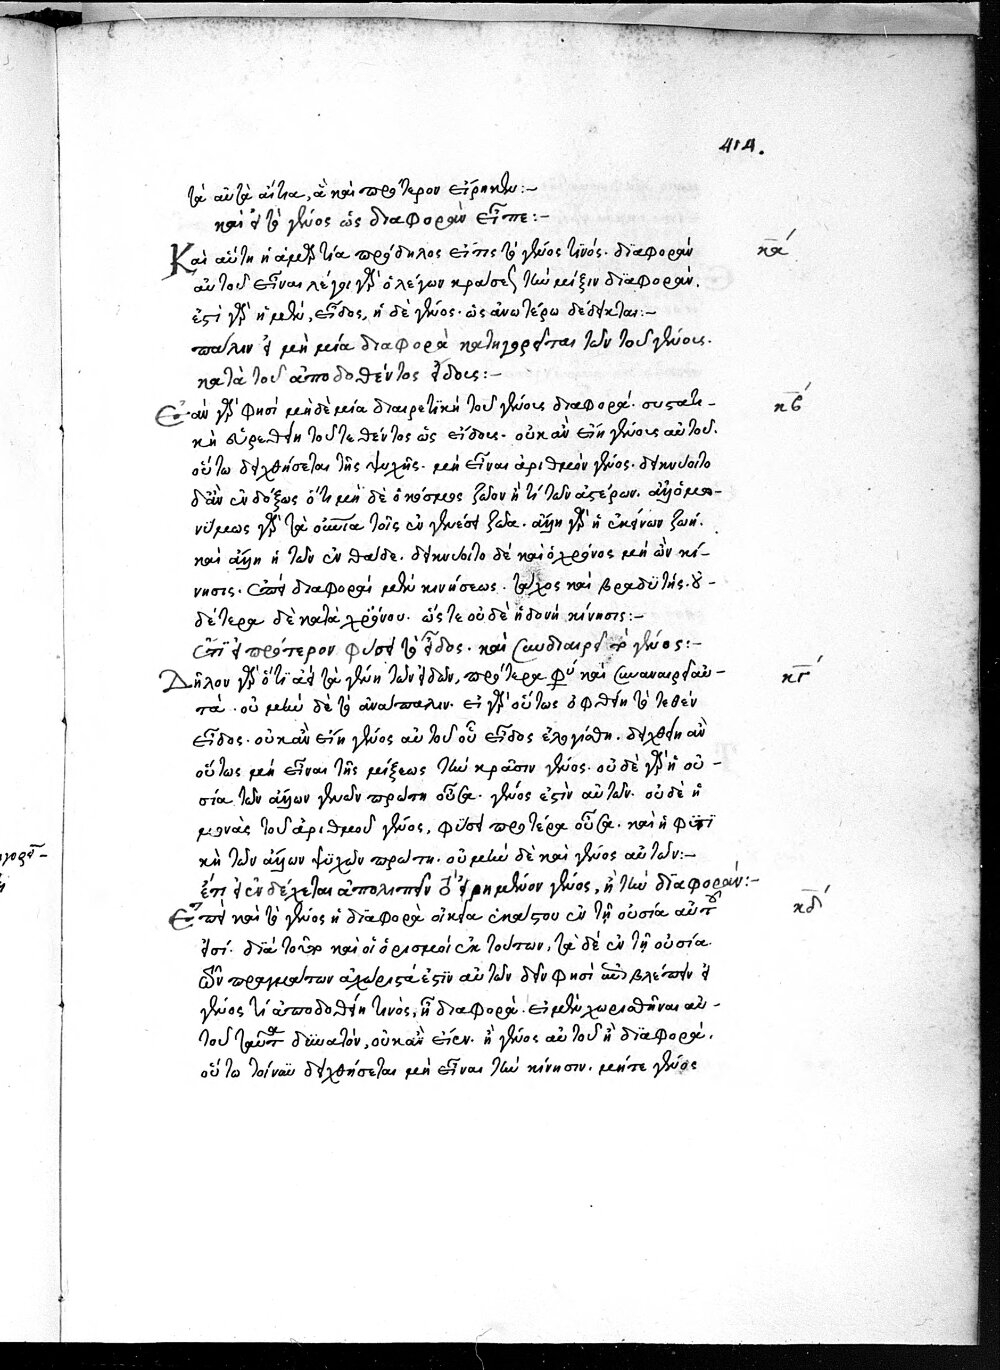 414.
τὰ αὐτὰ αἴτια, ἃ καὶ πρότερον εἴρηκεν:—
καὶ εἰ τὸ γένος ὡς διαφορὰν εἶπε:—
Καὶ αὕτη ἡ ἁμαρτία πρόδηλος εἴ τις τὸ γένος τινός. διαφορὰν κα΄
αὐτοῦ εἶναι λέγει γὰρ ὁ λέγων κράσεως τὴν μίξιν διαφοράν.
ἐστὶ γὰρ ἡ μὲν, εἶδος, ἡ δὲ γένος. ὡς ἀνωτέρω δέδεικται:—
πάλιν εἰ μὴ μία διαφορὰ κατηγορεῖται τῶν τοῦ γένους.
κατὰ τοῦ ἀποδοθέντος εἴδους:—
Ἐὰν γὰρ φησὶ μηδὲ μία διαιρετικὴ τοῦ γένους διαφορὰ. συστατι— κβ΄
κὴ εὑρεθῇ τοῦ τεθέντος ὡς εἴδους. οὐκ ἂν εἴη γένους αὐτοῦ.
οὕτω δειχθήσεται τῆς ψυχῆς. μὴ εἶναι ἀριθμὸν γένος. δεικνύοιτο
δ' ἂν ἐνδόξως ὅτι μὴ δὲ ὁ κόσμος ζῶον ἤ τι τῶν ἀστέρων. ἀλλ' ὁμω—
νύμως γὰρ τὰ οὐράνια τοῖς ἐν γενέσει ζῶα. ἄλλη γὰρ ἡ ἐκείνων ζωή.
καὶ ἄλλη ἡ τῶν ἐνθάδε. δεικνύοιτο δὲ καὶ ὁ χρόνος μὴ ὢν κί—
νησις. ἐπεὶ διαφοραὶ μὲν κινήσεως. τάχος καὶ βραδυτής. οὐ—
δέτερα δὲ κατὰ χρόνου. ὥστε οὐδὲ ἡδονὴ κίνησις:—
ἔτι εἰ πρότερον φύσει τὸ εἶδος. καὶ συναναιρεῖ τὸ γένος:—
Δῆλον γὰρ ὅτι ἀεὶ τὰ γένη τῶν εἰδῶν, πρότερα φύσει καὶ συναναιρεῖ αὐ— κγ΄
τά. οὐ μὲν δὲ τὸ ἀνάπαλιν. εἰ γὰρ οὕτως ὀφθείη τὸ τεθὲν
εἶδος. οὐκ ἂν εἴη γένος αὐτοῦ οὗ εἶδος ἐλογίσθη. δειχθείη ἂν
οὕτως μὴ εἶναι τῆς μίξεως τὴν κρᾶσιν γένος. οὐδὲ γὰρ ἡ οὐ—
σία τῶν ἄλλων γενῶν πρώτη οὖσα. γένος ἐστὶν αὐτῶν. οὐδὲ ἡ
μονὰς τοῦ ἀριθμοῦ γένος, φύσει προτέρα οὖσα. καὶ ἡ φυτι
κὴ τῶν ἄλλων ψυχῶν πρώτη. οὐ μὲν δὲ καὶ γένος αὐτῶν:—
ἔτι εἰ ἐνδέχεται ἀπολιπεῖν τὸ εἰρημένον γένος, ἢ τὴν διαφοράν:—
Ἐπεὶ καὶ τὸ γένος ἡ διαφορὰ οἰκεῖα ἑκάστου ἐν τῇ οὐσίᾳ αὐτοῦ κδ΄
εἰσί. διὰ τοῦτο καὶ οἱ ὁρισμοὶ ἐκ τούτων, τὰ δὲ ἐν τῇ οὐσίᾳ
τῶν πραγμάτων ἀχώριστά ἐστιν αὐτῶν δεῖν φησὶ βλέπειν εἰ
γένος τι ἀποδοθῇ τινὸς, ἢ διαφορά. εἰ μὲν χωρισθῆναι αὐ—
τοῦ ταῦτα δυνατὸν, οὐκ ἂν εἴεν. ἢ γένος αὐτοῦ ἢ διαφορά.
οὕτω τοίνυν δειχθήσεται μὴ εἶναι τὴν κίνησιν. μήτε γένος